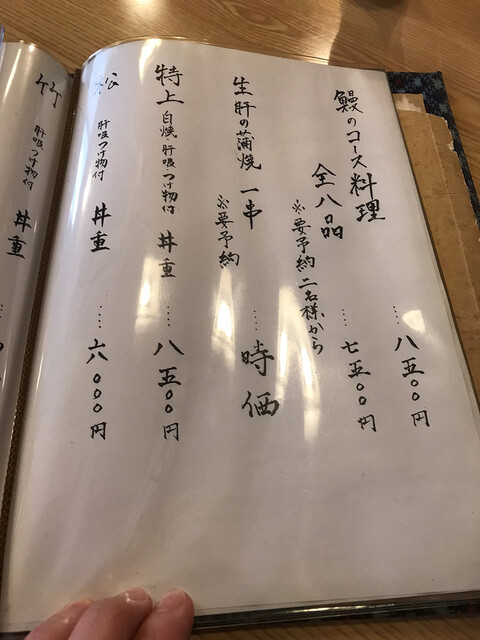 鰻のコース料理
‥‥八五〇〇円
全八品
‥‥七五〇〇円
※要予約 二名様から
生肝の蒲焼 一串 ‥‥ 時価
※要予約
特上 白焼 肝吸 つけ物付 丼重 ‥‥ 八五〇〇円
松 肝吸 つけ物付 丼重 ‥‥ 六〇〇〇円
竹 肝吸 つけ物付 丼重